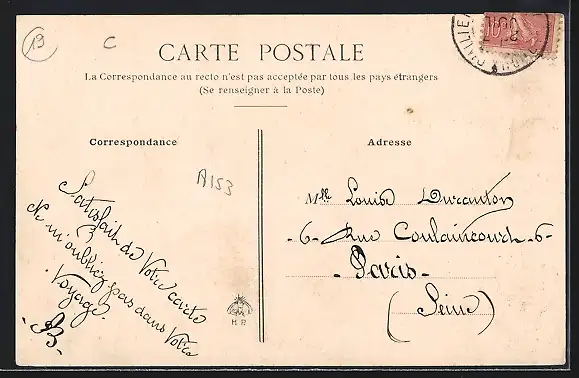 13
C
10
CARTE POSTALE
La Correspondance au recto n'est pas acceptée par tous les pays étrangers
(Se renseigner à la Poste)
Correspondance
A153
Satisfait de Votre carte
Ne m'oubliez pas dans Votre
Voyage.
-B-
H. P.
Adresse
Mlle Louise Duranton
-6- Rue Coulaincourt -6-
- Paris -
(Seine)